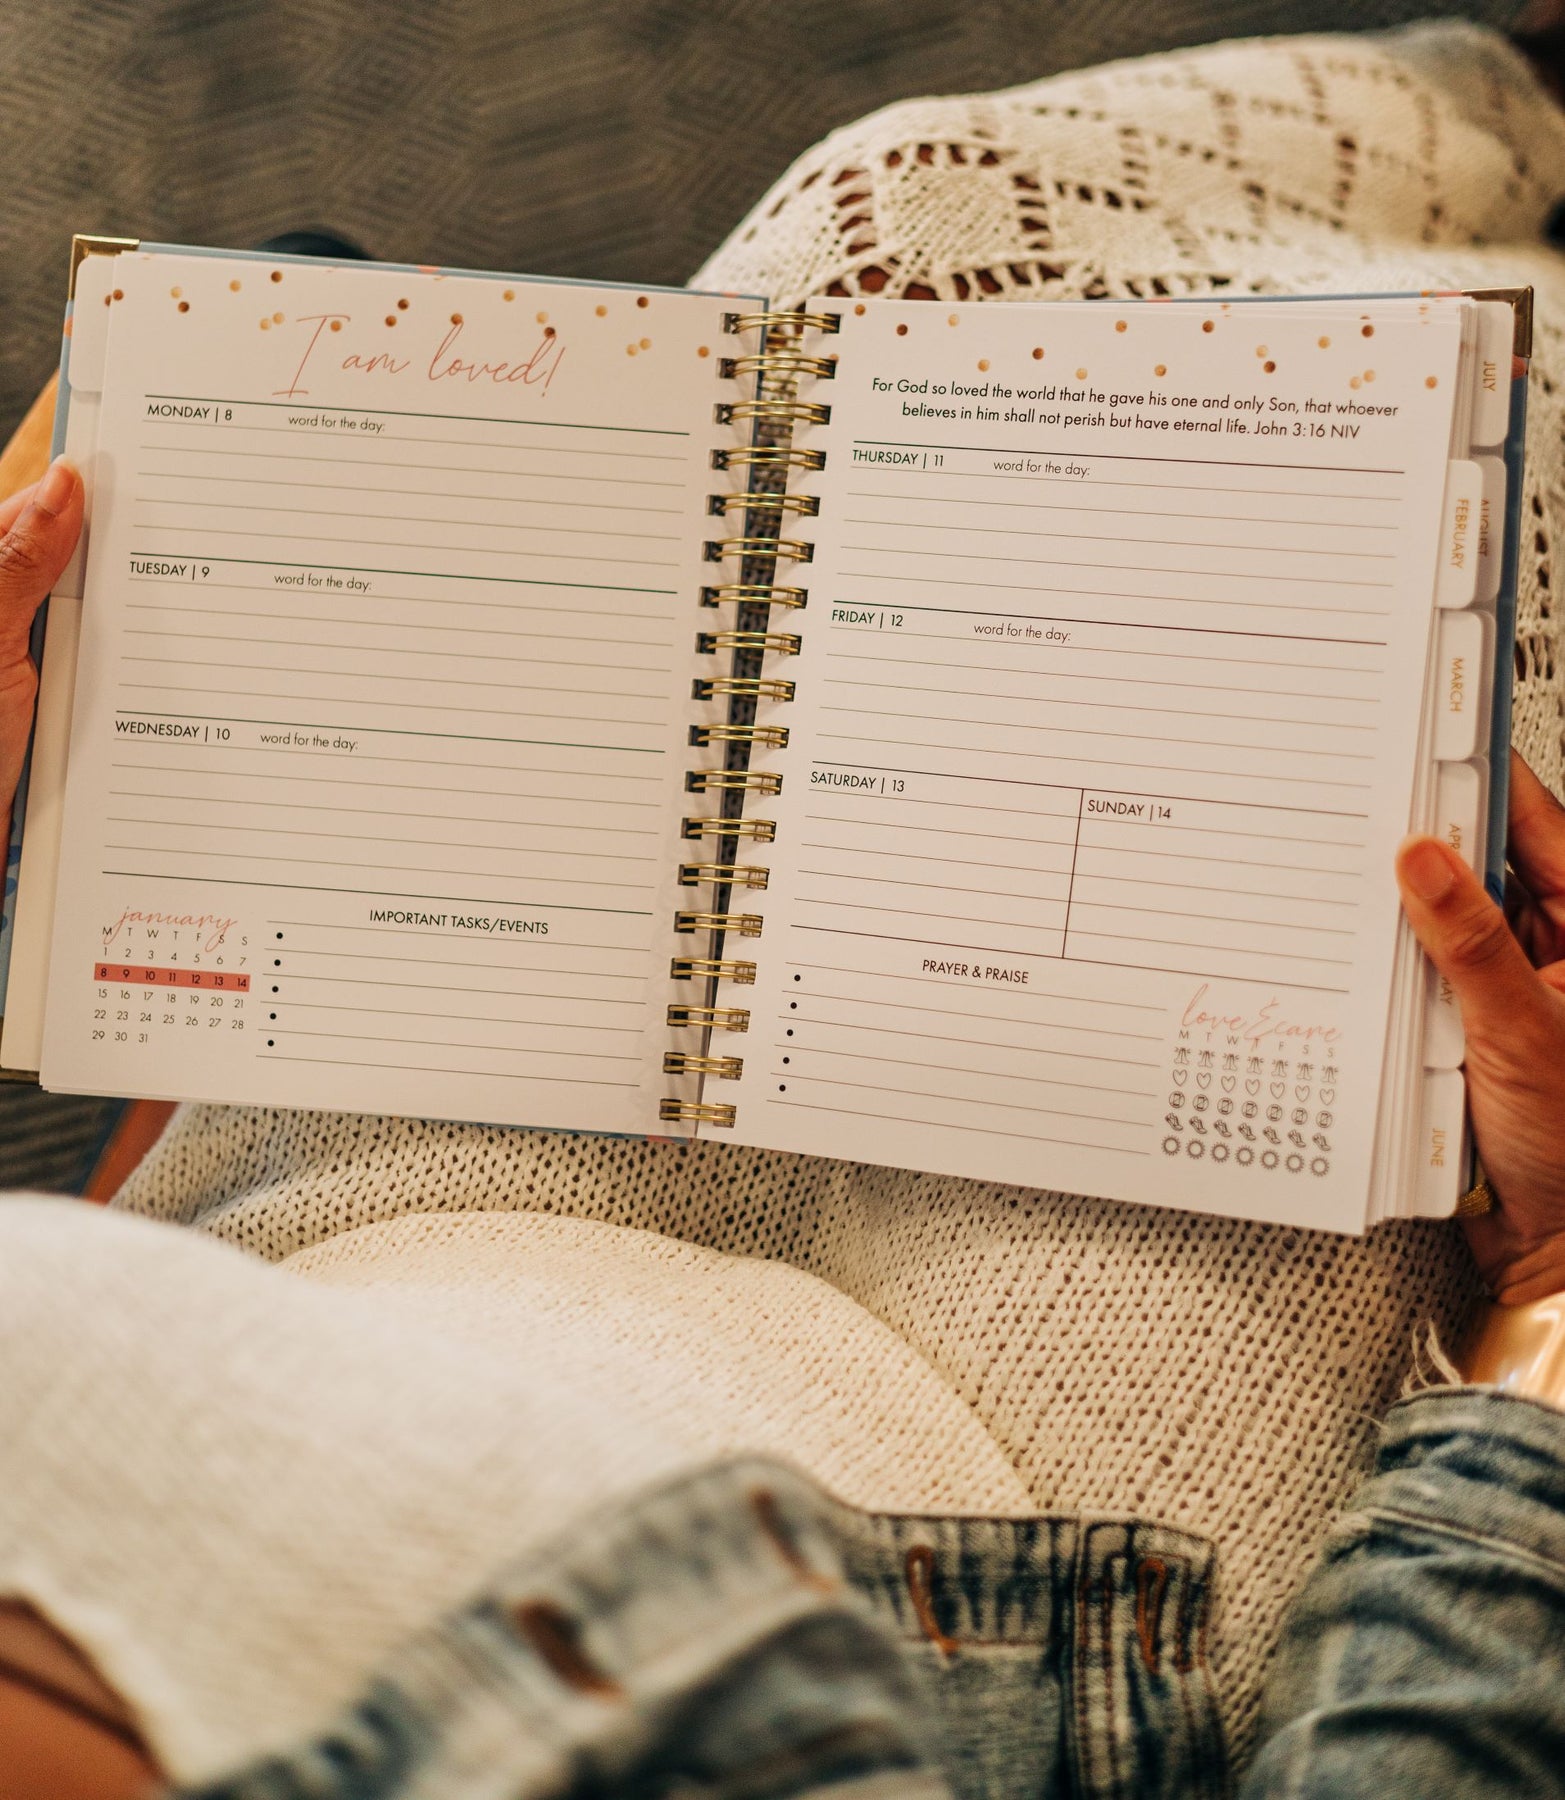 I am loved!
MONDAY | 8 word for the day:
TUESDAY | 9 word for the day:
WEDNESDAY | 10 word for the day:
january
M T W T F S S
1 2 3 4 5 6 7
8 9 10 11 12 13 14
15 16 17 18 19 20 21
22 23 24 25 26 27 28
29 30 31
IMPORTANT TASKS/EVENTS
For God so loved the world that he gave his one and only Son, that whoever
believes in him shall not perish but have eternal life. John 3:16 NIV
THURSDAY | 11 word for the day:
FRIDAY | 12 word for the day:
SATURDAY | 13
SUNDAY | 14
PRAYER & PRAISE
love & care
M T W T F S S
JULY
AUGUST
FEBRUARY
MARCH
APR
MAY
JUNE